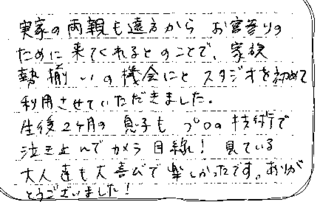 実家の両親も遠方から お宮参りの
ために来てくれるとのことで、家族
勢揃いの機会にと スタジオを初めて
利用させていただきました。
生後2ヶ月の 息子も プロの技術で
泣き止んでカメラ目線！ 見ている
大人達も大喜びで楽しかったです。ありが
とうございました！